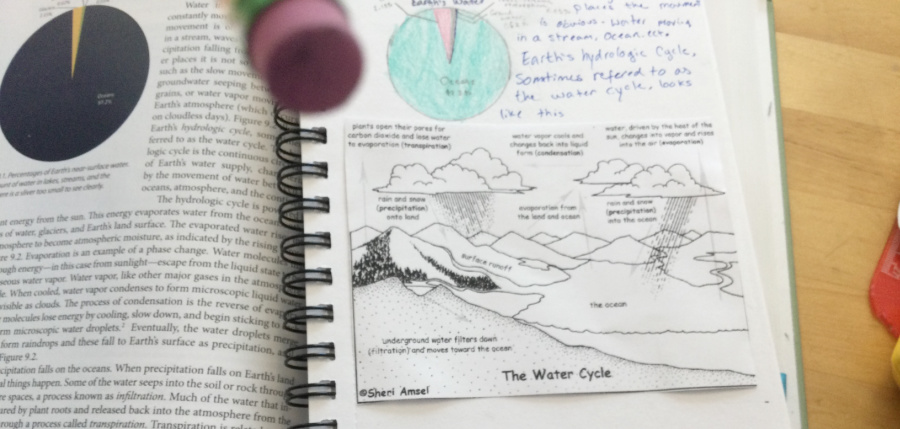 Oceans
97.2%
9.1. Percentages of Earth's near-surface water.
ount of water in lakes, streams, and the
is a sliver too small to see clearly.
Water
constantly mo
movement is
in a stream, waves
cipitation falling fr
er places it is not so
such as the slow move
groundwater seeping betw
grains, or water vapor movi
Earth's atmosphere (which
on cloudless days). Figure 9
Earth's hydrologic cycle, som
ferred to as the water cycle.
logic cycle is the continuous c
of Earth's water supply, char
by the movement of water bet
oceans, atmosphere, and the co
The hydrologic cycle is pow
nt energy from the sun. This energy evaporates water from the ocean
s of water, glaciers, and Earth's land surface. The evaporated water ri
mosphere to become atmospheric moisture, as indicated by the rising
re 9.2. Evaporation is an example of a phase change. Water molecul
ough energy—in this case from sunlight—escape from the liquid state
seous water vapor. Water vapor, like other major gases in the atmos
le. When cooled, water vapor condenses to form microscopic liquid wa
visible as clouds. The process of condensation is the reverse of evap
molecules lose energy by cooling, slow down, and begin sticking to
rm microscopic water droplets.² Eventually, the water droplets mer
form raindrops and these fall to Earth's surface as precipitation, as
Figure 9.2.
cipitation falls on the oceans. When precipitation falls on Earth's land
al things happen. Some of the water seeps into the soil or rock throu
re spaces, a process known as infiltration. Much of the water that is
ured by plant roots and released back into the atmosphere from the
rough a process called transpiration. Transpiration is
Earth's Water
Oceans
places the
is obvious. water moving
in a stream, Ocean, ect.
Earth's hydrologic Cycle,
Sometimes refered to as
the water cycle, looks
like this
plants open their pores for
carbon dioxide and lose water
to evaporation (transpiration)
water vapor cools and
changes back into liquid
form (condensation)
water, driven by the heat of the
sun, changes into vapor and rises
into the air (evaporation)
rain and snow
(precipitation)
onto land
evaporation from
the land and ocean
rain and snow
(precipitation)
into the ocean
surface runoff
the ocean
underground water filters down
(filtration) and moves toward the ocean
The Water Cycle
©Sheri Amsel